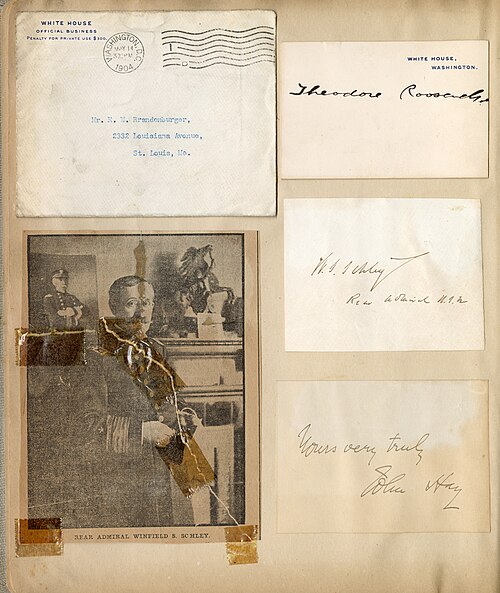 WHITE HOUSE
OFFICIAL BUSINESS
PENALTY FOR PRIVATE USE $300.
WASHINGTON, D.C.
MAY 14
1904
Mr. H. W. Brandenburger,
2332 Louisiana Avenue,
St. Louis, Mo.
WHITE HOUSE,
WASHINGTON.
Theodore Roosevelt
W. S. Schley
Rear Admiral U.S.N
Yours very truly
John Hay
REAR ADMIRAL WINFIELD S. SCHLEY.